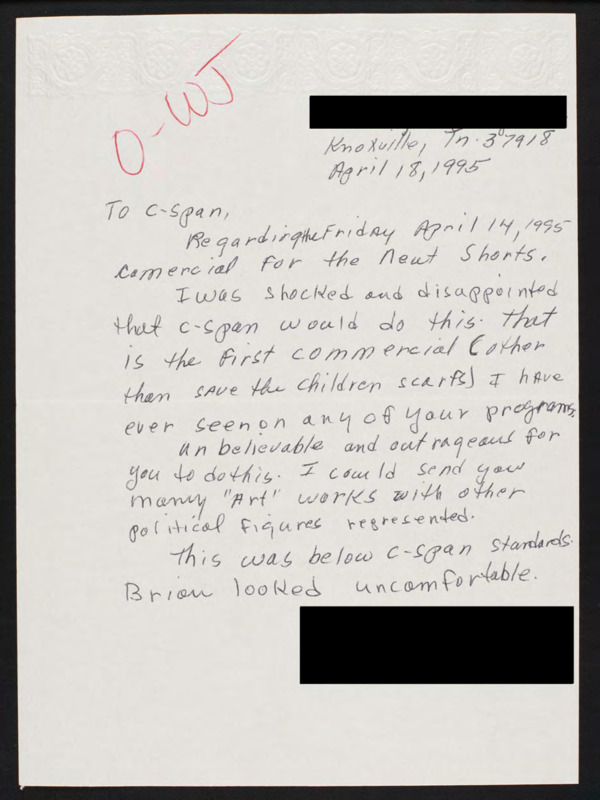 O-WJ
Knoxville, Tn. 37918
April 18, 1995
To C-Span,
Regarding the Friday April 14, 1995
comercial for the Neut Shorts.
I was shocked and disappointed
that C-Span would do this. That
is the first commercial (other
than save the children scarfs) I have
ever seen on any of your programs.
Unbelievable and outrageous for
you to do this. I could send you
many "Art" works with other
political figures represented.
This was below C-Span standards.
Brian looked uncomfortable.